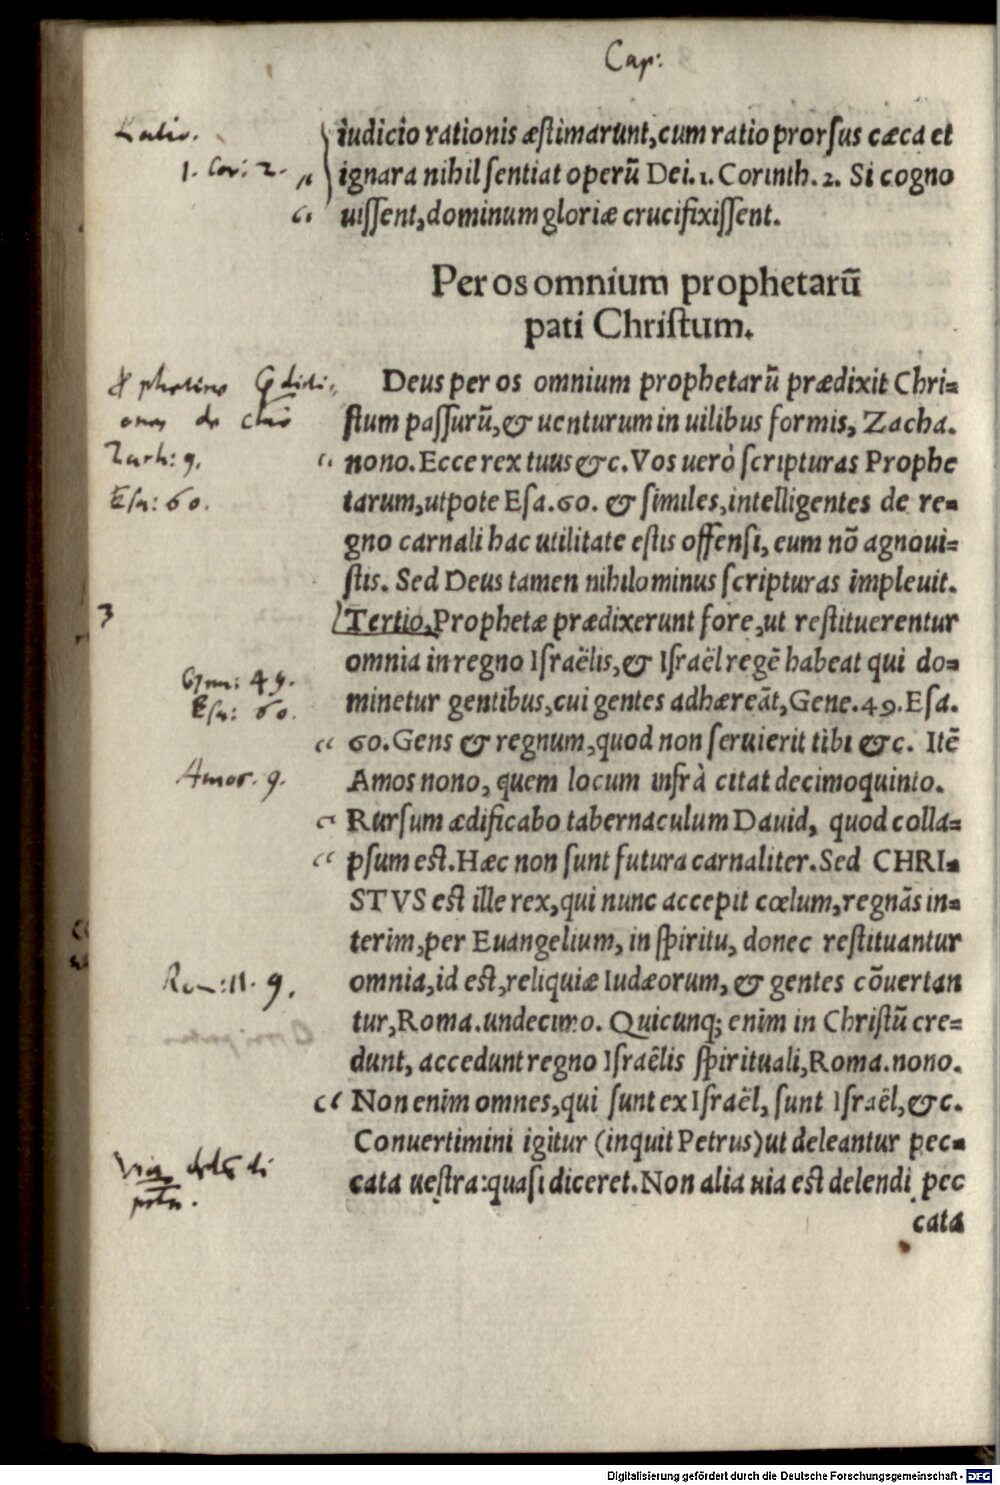 Cap:
Ratio.
1. Cor: 2.
iudicio rationis æstimarunt,cum ratio prorsus cæca et
ignara nihil sentiat operũ Dei.1.Corinth.2. Si cogno
uissent,dominum gloriæ crucifixissent.
Per os omnium prophetarũ
pati Christum.
Deus per os omnium prophetarũ prædixit Chri=
stum passurũ,& uenturum in uilibus formis, Zacha.
Zach: 9.
nono.Ecce rex tuus &c.Vos uerò scripturas Prophe
Esa: 60.
tarum,utpote Esa.60. & similes,intelligentes de re=
gno carnali hac utilitate estis offensi, eum nõ agnoui=
stis. Sed Deus tamen nihilominus scripturas impleuit.
3
Tertio,Prophetæ prædixerunt fore,ut restituerentur
omnia in regno Israëlis,& Israël regẽ habeat qui do=
Gen: 49.
minetur gentibus,cui gentes adhæreãt,Gene.49.Esa.
Esa: 60.
60.Gens & regnum,quod non seruierit tibi &c. Itẽ
Amos. 9.
Amos nono, quem locum infrà citat decimoquinto.
Rursum ædificabo tabernaculum Dauid, quod colla=
psum est.Hæc non sunt futura carnaliter.Sed CHRI=
STVS est ille rex,qui nunc accepit cœlum,regnãs in=
terim,per Euangelium, in spiritu, donec restituantur
Rom: 11. 9.
omnia,id est,reliquiæ Iudæorum, & gentes cõuertan
tur,Roma.undecimo. Quicunq; enim in Christũ cre=
dunt, accedunt regno Israëlis spirituali,Roma.nono.
Non enim omnes,qui sunt ex Israël, sunt Israël,&c.
Conuertimini igitur (inquit Petrus)ut deleantur pec=
Via
cata uestra:quasi diceret.Non alia uia est delendi pec
cata
Digitalisierung gefördert durch die Deutsche Forschungsgemeinschaft - DFG